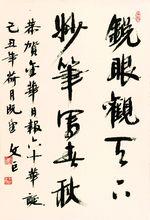 銳眼觀天下
妙筆寫春秋
恭賀金華日報六十華誕
己丑年荷月既望